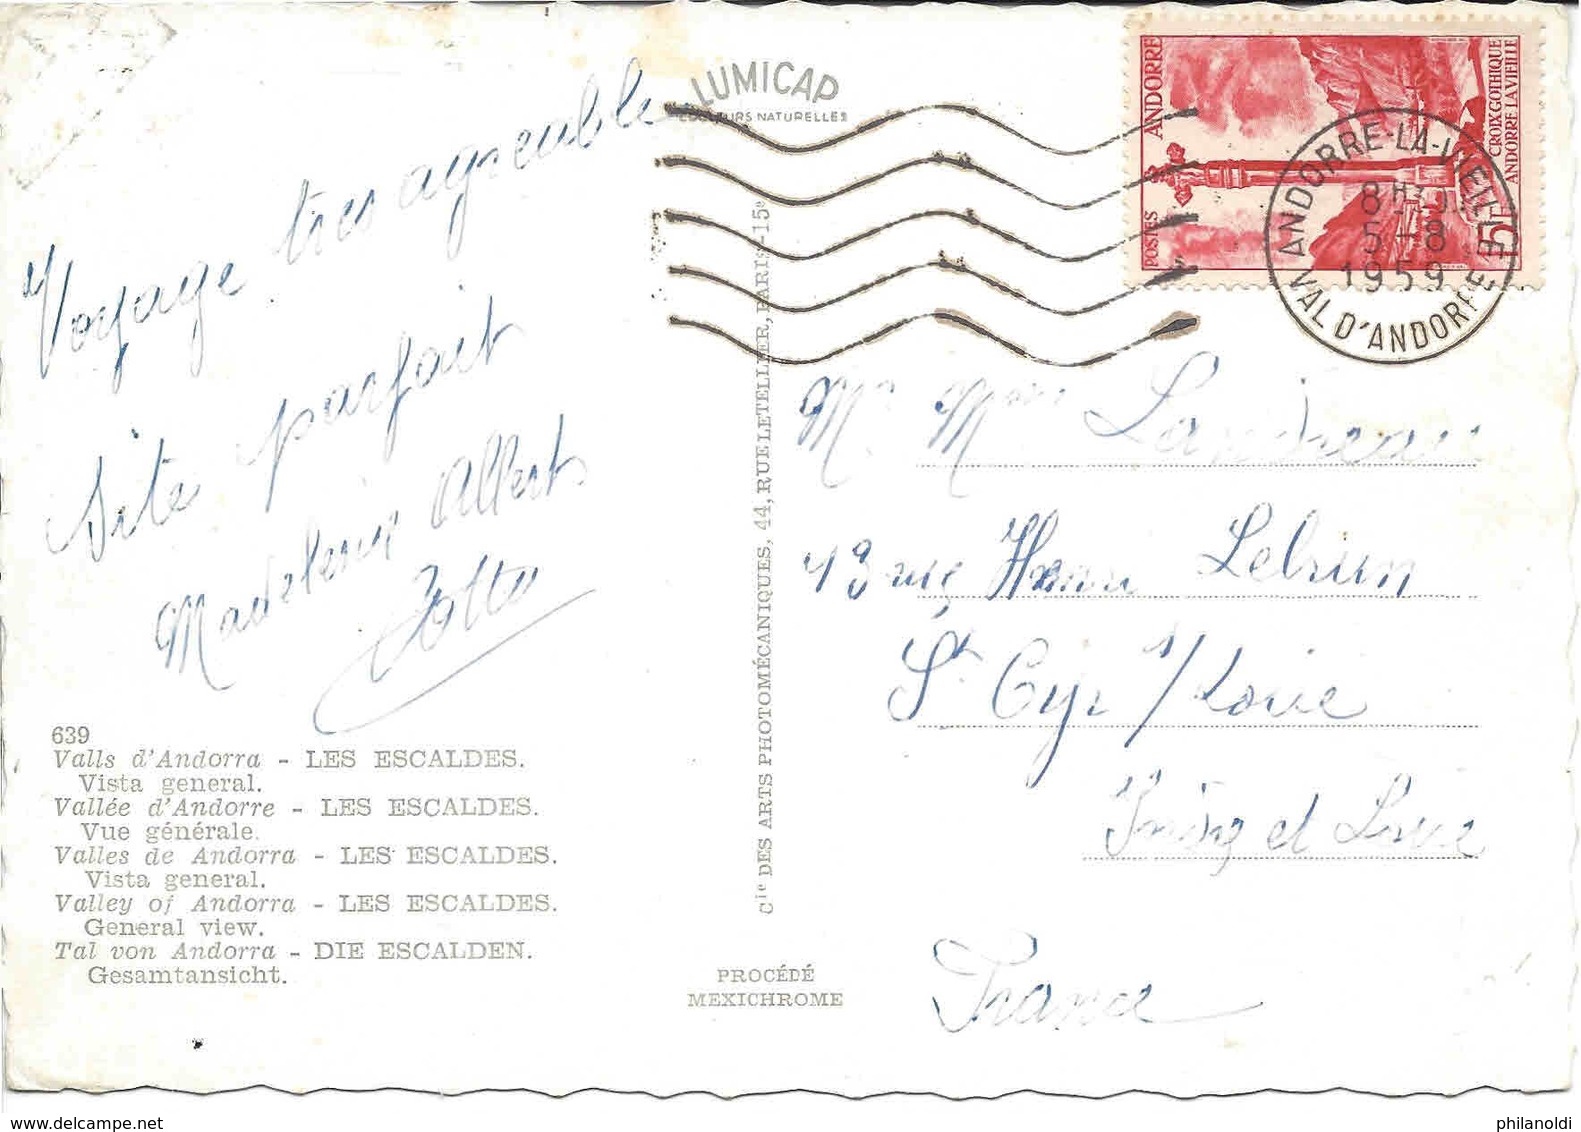 LUMICAP
COULEURS NATURELLES
Voyage tres agreable
Site parfait
Madeleine Albert
639
Valls d'Andorra - LES ESCALDES.
Vista general.
Vallée d'Andorre - LES ESCALDES.
Vue générale.
Valles de Andorra - LES ESCALDES.
Vista general.
Valley of Andorra - LES ESCALDES.
General view.
Tal von Andorra - DIE ESCALDEN.
Gesamtansicht.
Cie DES ARTS PHOTOMÉCANIQUES, 44, RUE LETELLIER, PARIS-15e
PROCÉDÉ
MEXICHROME
ANDORRE
POSTES
CROIX GOTHIQUE
ANDORRE LA VIEILLE
15F
ANDORRE-LA-VIEILLE
8H30
5-8
1959
VAL D'ANDORRE
Mr Mme Landreau
43 rue Henri Lebrun
St Cyr s/ Loire
Indre et Loire
France
www.delcampe.net
philanoldi